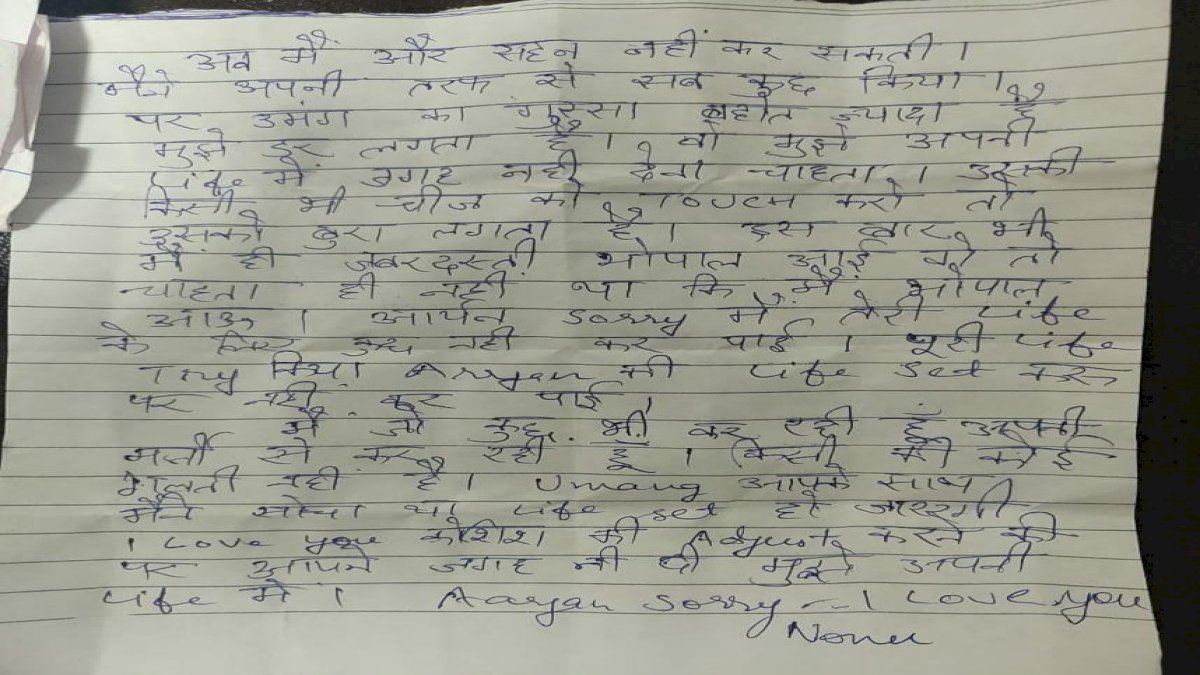 अब मैं और सहन नहीं कर सकती ।
मैंने अपनी तरफ से सब कुछ किया ।
पर उमंग का गुस्सा बहोत ज्यादा है
मुझे डर लगता है । वो मुझे अपनी
Life में जगह नही देना चाहता । उसकी
किसी भी चीज को TOUCH करो तो
उसको बुरा लगता है । इस बार भी
मैं ही जबरदस्ती भोपाल आई वो तो
चाहता ही नही था कि मैं भोपाल
आऊ । sorry मैं तेरी Life
के लिए कुछ नही कर पाई । पूरी Life
Try किया Aryan की Life set करू
पर नही कर पाई ।
मैं जो कुछ भी कर रही हूं अपनी
मर्जी से कर रही हू । किसी की कोई
गलती नही है । Umang आपके साथ
मैंने सोचा था Life set हो जाएगी
I Love you कोशिश की Adjust करने की
पर आपने जगह नी दी मुझे अपनी
Life मे । Aaryan sorry -- I Love you
Nonu